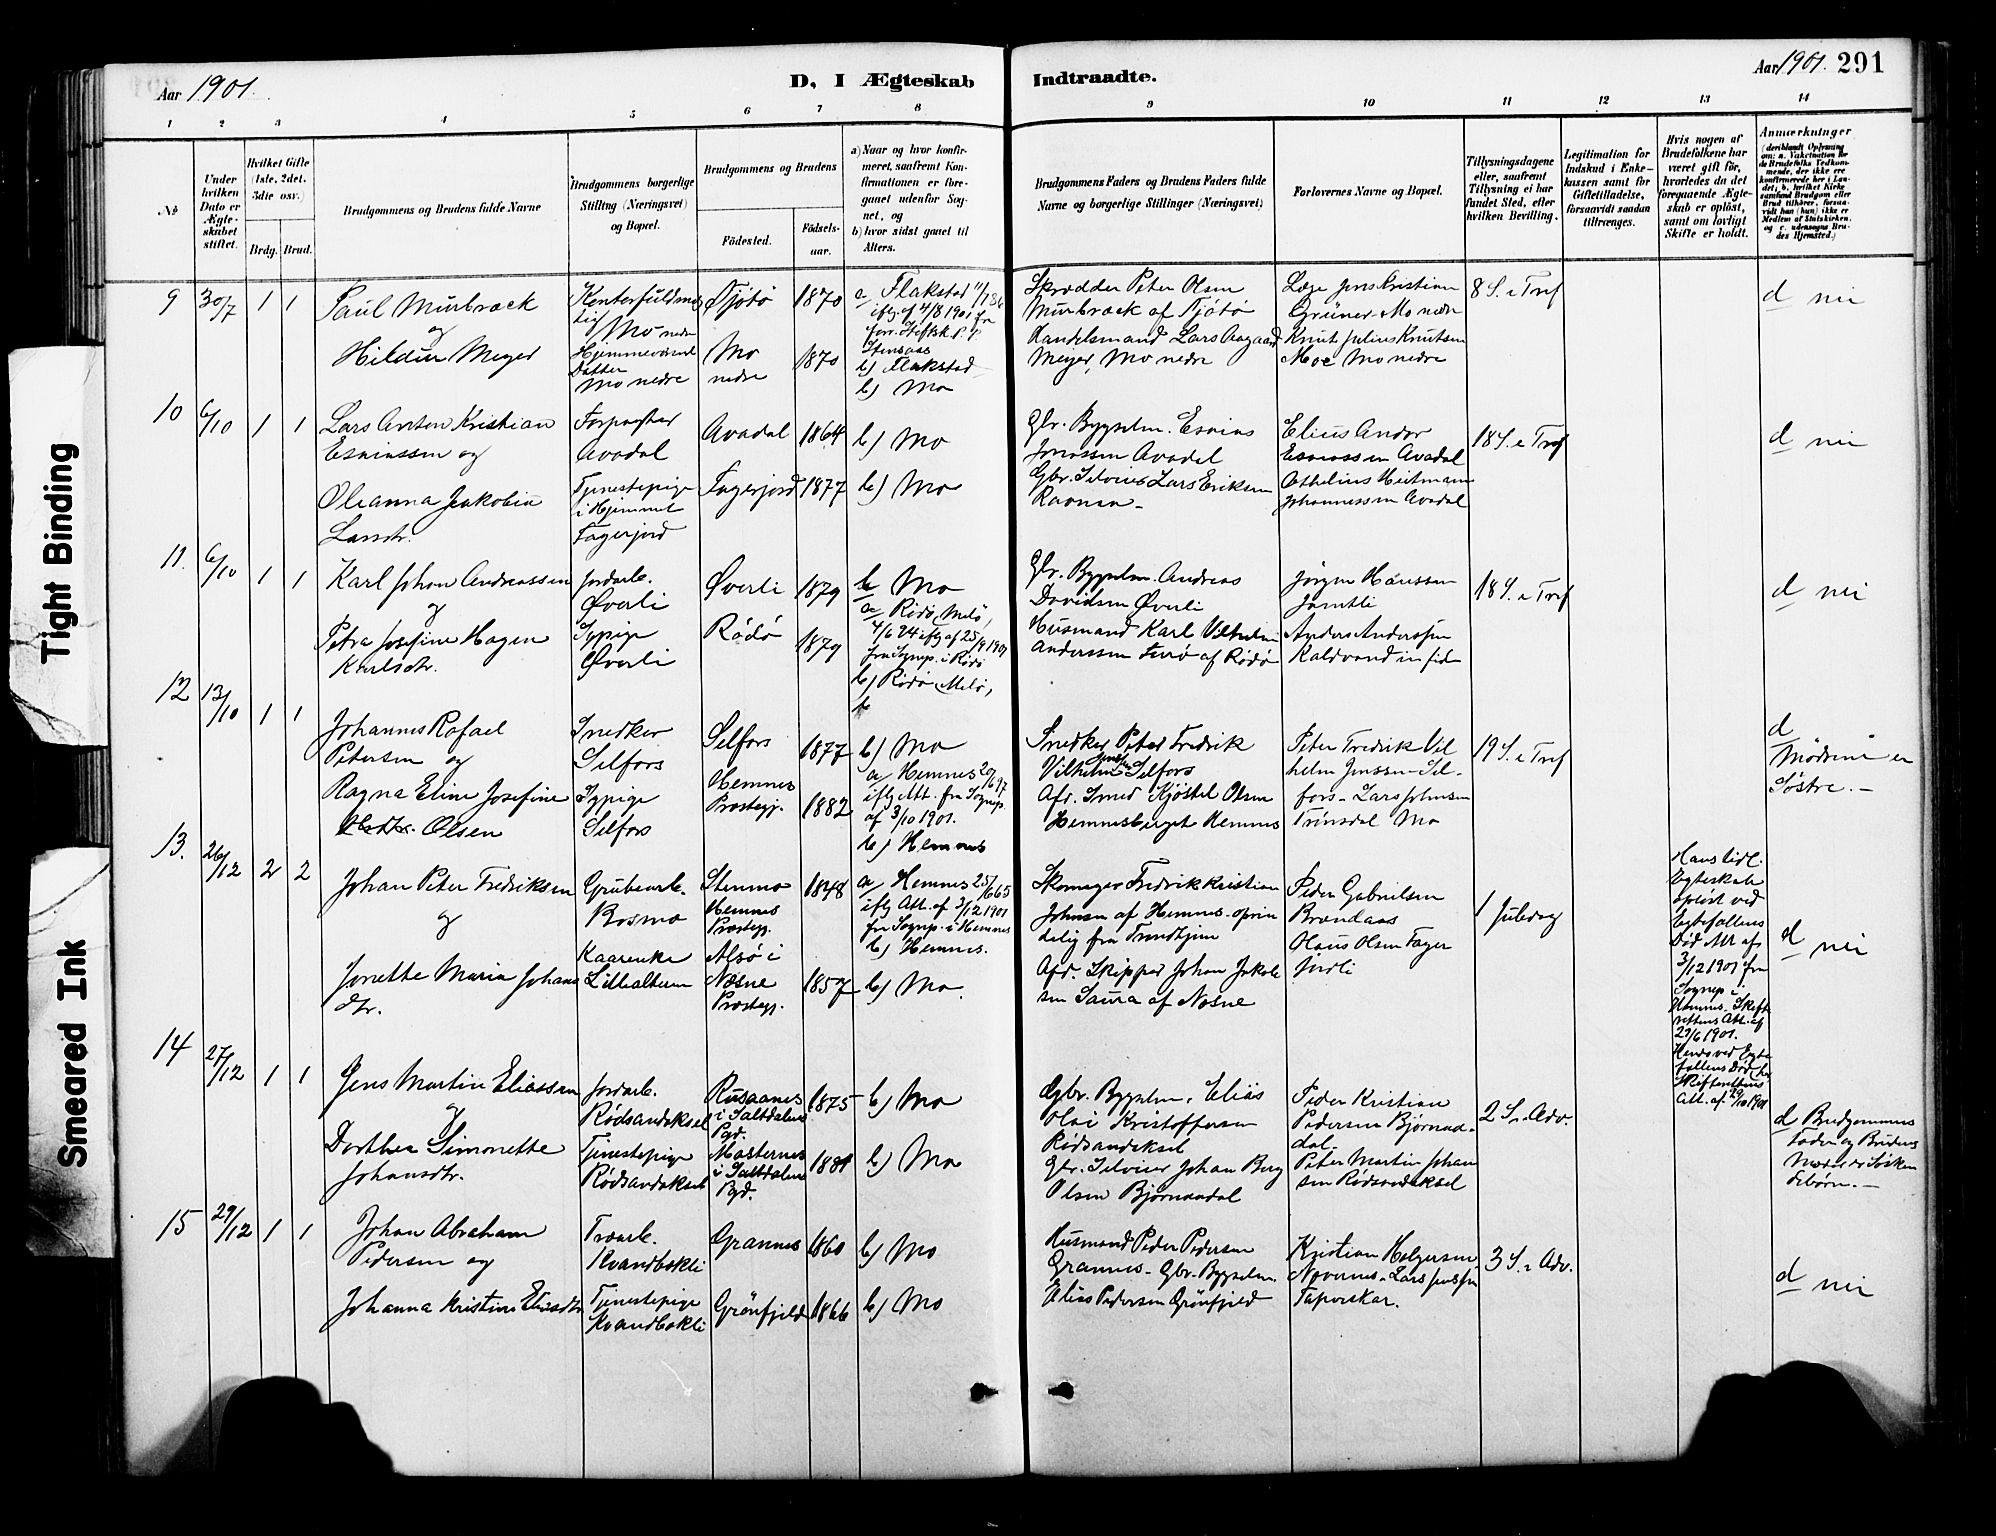 Aar 1901.
D. I Ægteskab Indtraadte.
Aar 1901. 291
1 2 3 4 5 6 7 8 9 10 11 12 13 14
No
Under hvilken Dato er Ægteskabet stiftet.
Hvilket Gifte (1ste, 2det, 3die osv.)
Brdg. Brud.
Brudgommens og Brudens fulde Navne
Brudgommens borgerlige Stilling (Næringsvei) og Bopæl.
Brudgommens og Brudens
Fødested.
Fødselsaar.
a) Naar og hvor konfirmeret, saafremt Konfirmationen er foregaaet udenfor Sognet, og
b) hvor sidst gaaet til Alters.
Brudgommens Faders og Brudens Faders fulde Navne og borgerlige Stillinger (Næringsvei)
Forlovernes Navne og Bopæl.
Tillysningsdagene eller, saafremt Tillysning ei har fundet Sted, efter hvilken Bevilling.
Legitimation for Indskud i Enkekassen samt for Giftetilladelse, forsaavidt saadan tiltrænges.
Hvis nogen af Brudefolkene har været gift før, hvorledes da det foregaaende Ægteskab er opløst, samt om lovligt Skifte er holdt.
Anmærkninger
9 30/7 1 1
Paul Murbræk
og
Hildur Meyer
Mo nedre
Hjemmeværende
Datter
Mo nedre
Tjøtø 1870
Mo
nedre 1870
a) Flakstad
Stensaas
b) Flakstad
b) Mo
Skrædder Peter Olsen
Murbræk af Tjøtø
Handelsmand Lars Aagaard
Meyer, Mo nedre
Læge Jens Kristian
Grüner - Mo nedre
Knut Julius Knutsen
Moe Mo nedre
8 S. e Tref
d nei
10 6/10 1 1
Lars Anton Kristian
Esaiassen og
Oleanna Jakobin
Larsdtr.
Forpagter
Avadal
Tjenestepige
i Hjemmet
Fagerjord
Avadal 1864
Fagerjord 1877
b) Mo
b) Mo
Gbr. Bygselm. Esaias
Jonassen Avadal
Gbr. Selveier Lars Eriksen
Ravnaa -
Elius Andor
Esaiassen Avadal
Johannessen Avadal
18 S. e Tref
d nei
11. 6/10 1 1
Karl Johan Andreassen
og
Petra Josefine Hagen
Karlsdtr.
Jordarb.
Øverli
Sypige
Øverli
Øverli 1879
Rødø 1879
b Mo
a) Rødø (Melø,
4/6 94 iflg af 25/9 1901
fra Sognep. i Rødø
b) Rødø (Melø,
Gbr. Bygselm. Andreas
Davidsen Øverli
Husmand Karl Vilhelm
Anderssen Furø af Rødø
Jørgen Hanssen
Jamtli
Anders Anderssen
18 S. e Tref
d nei
12 13/10 1 1
Johannes Rafael
Petersen og
Ragna Eline Josefine
Olsen
Snedker
Selfors
Sypige
Selfors
Selfors 1877
Hemnes
Præstegj. 1882
b) Mo
a) Hemnes 20/6 97
iflg Att. fra Sognep.
af 3/10 1901.
b) Hemnes
Snedker Peter Fredrik
Vilhelm Jenssen Selfors
Afd. Smed Kjøstel Olsen
Hemnesberget Hemnes
Peter Fredrik Vil
helm Jenssen - Sel-
fors - Lars Johnsen
Mo
19 S. e Tref
d
Mødrene er
Søstre. -
13. 26/12 2 2
Johan Peter Fredriksen
og
Jonette Maria Johans
dtr.
Grubearb.
Bosmo
Kaarenke
Lillealteren
Stenmo
Hemnes
Præstegj. 1848
Alsø i
Nesne
Præstegj. 1857
a) Hemnes 25/6 65
iflg Att. af 3/12 1901
fra Sognep. i Hemnes
b) Hemnes.
b) Mo.
Skomager Fredrik Kristian
Johnsen af Hemnes - oprin
delig fra Trondhjem
Afd. Skipper Johan Jakob
sen Saura af Nesne
Peder Gabrielsen
Brendaas
Olaus Olsen Fager
1 Juledag
Hans tidl.
Egteskab
opløst ved
Egtefællens
Død Att af
3/12 1901 fra
Sognep i
Hemnes. Skift
rettens Att. af
29/6 1901.
Hendes ved Egte
fællens Død
Skifterettens
Att. af 29/10 1901
d nei
14 27/12 1 1
Jens Martin Eliassen
og
Dorthea Simonette
Johansdtr.
Jordarb.
Rødsandaksel
Tjenestepige
Rødsandaksel
Rusaanes
i Saltdalens
Pgd. 1875
i Saltdalens
Pgd. 1881
b) Mo
b) Mo
Gbr. Bygselm. Elias
Olai Kristoffersen
Rødsandaksel
Gbr. Selveier Johan Berg
Olsen Bjørnaadal
Peder Kristian
Pedersen Bjørnaa-
dal -
Peter Martin Johan
sen Rødsandaksel
2 S. i Adv.
d Brudgommens
Fader og Brudens
Moder er Søsken
debørn. -
15 29/12 1 1
Johan Abraham
Pedersen og
Johanna Kristine Eliasdtr.
Træarb.
Kvandbækli
Tjenestepige
Kvandbækli
Grannes 1860
Grønfjeld 1866
b) Mo
b) Mo
Husmand Peder Pedersen
Grannes - Gbr. Bygselm.
Elias Pedersen Grønfjeld
Kristian Holgersen
Nævernes - Lars
3 S. i Adv.
d nei
Tight Binding
Smeared Ink